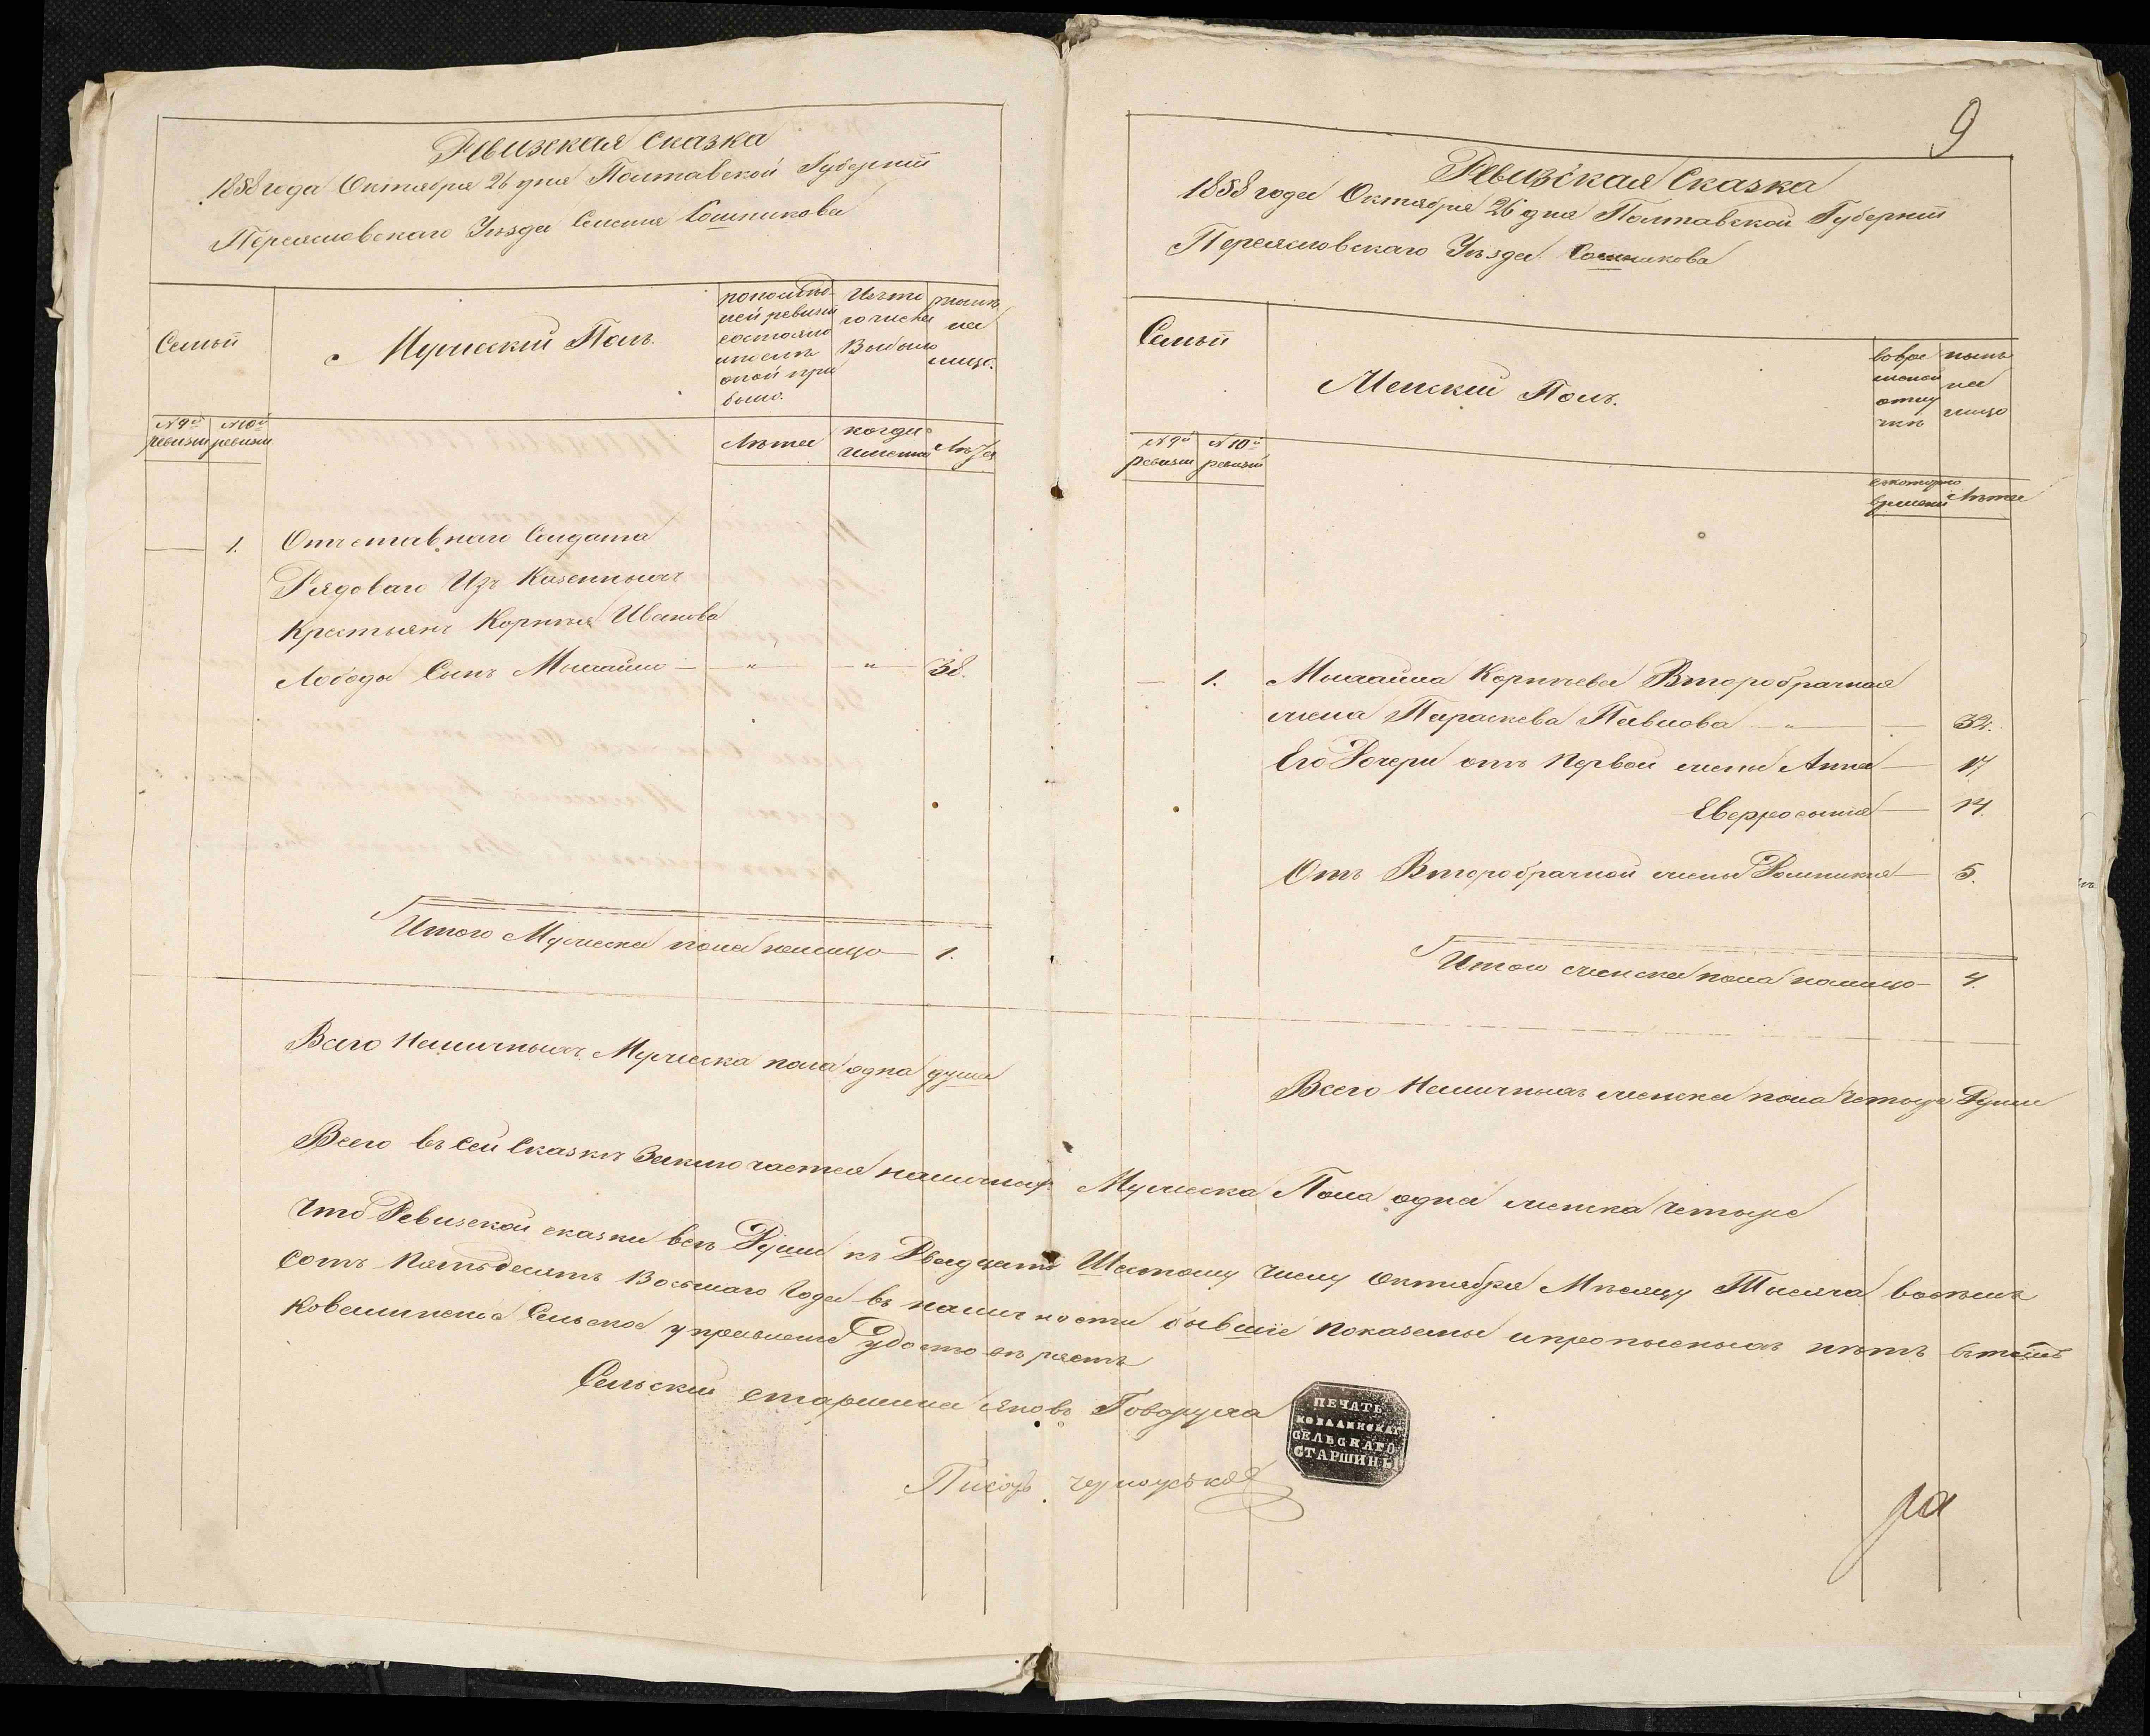 Ревизская Сказка
1858 года Октября 26 дня Полтавской Губернии
Переяславскаго Уезда Селения Сошникова
Семьи
Мужеский Полъ.
По последней ревизии состояло и после оной прибыло.
Изъ того числа Выбыло
ныне на лицо.
№ 9й ревизии
№ 10й ревизии
Лета
когда именно
Лета
1. Отставнаго Солдата
Рядоваго Изъ Казенныхъ
Крестьянъ Корнея Иванова
Лободы Сынъ Михайло — " — " — 38.
Итого Мужеска пола налицо — 1.
Всего Наличныхъ Мужеска пола одна душа
9
Ревизская Сказка
1858 года Октября 26 дня Полтавской Губернии
Переясловскаго Уезда Сошникова
Семьи
Женский Полъ.
во временной отлучке
ныне на лицо
№ 9й ревизии
№ 10й ревизии
съ котораго времени
Лета
1. Михайла Корнеева Второбрачная
жена Параскева Павлова — " — 32.
Его Дочери отъ Первой жены Анна — 17
Евфросиния — 14.
Отъ Второбрачной жены Домникия — 5.
Итого женска пола налицо — 4.
Всего Наличныхъ женска пола Четыре Души
Всего въ Сей Сказке Заключается наличныхъ Мужеска Пола одна женска Четыре
Что Ревизской сказки все Души къ Двадцать Шестому Числу Октября Месяца Тысяча восемь
сотъ Пятьдесятъ Восьмаго Года въ наличности бывшие показаны и прописныхъ нетъ въ томъ
Ковалинское Сельское управление Удостоверяетъ
Сельский старшина Яковъ Говоруха
ПЕЧАТЬ
КОВАЛИНСКАГ
СЕЛЬСКАГО
СТАРШИНЫ
Писарь